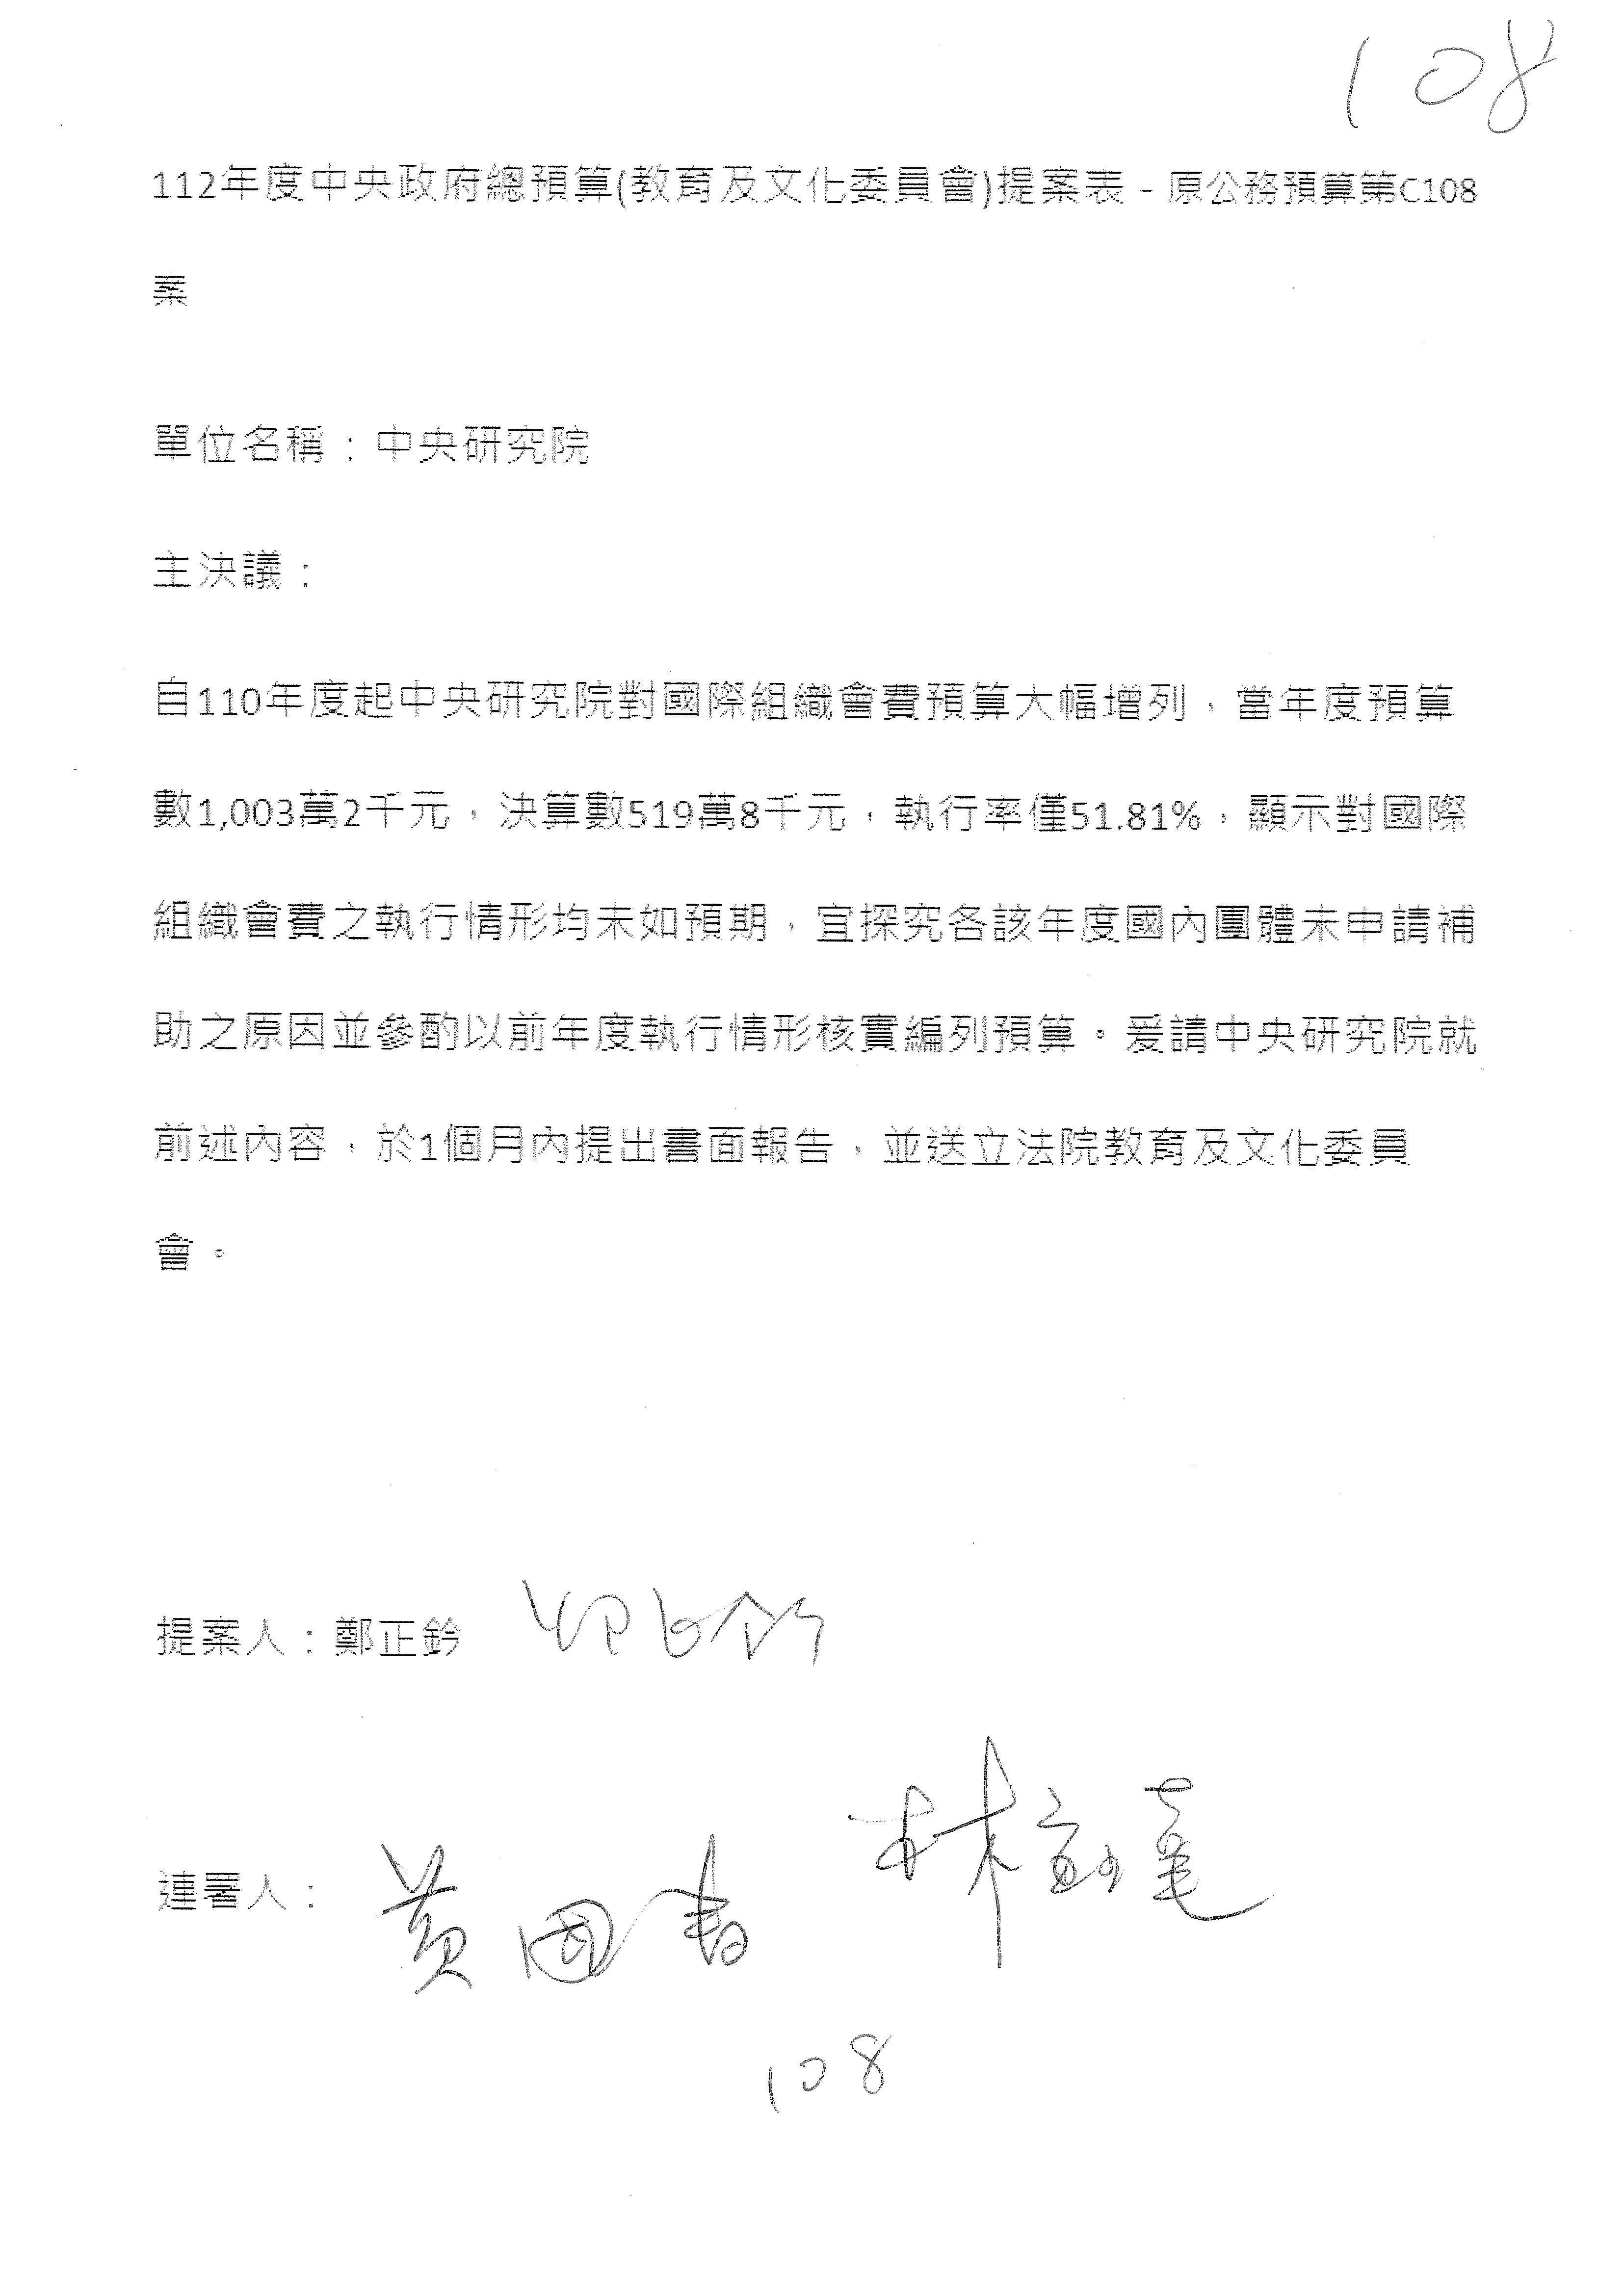 108
112年度中央政府總預算(教育及文化委員會)提案表 - 原公務預算第C108
案
單位名稱：中央研究院
主決議：
自110年度起中央研究院對國際組織會費預算大幅增列，當年度預算
數1,003萬2千元，決算數519萬8千元，執行率僅51.81%，顯示對國際
組織會費之執行情形均未如預期，宜探究各該年度國內團體未申請補
助之原因並參酌以前年度執行情形核實編列預算。爰請中央研究院就
前述內容，於1個月內提出書面報告，並送立法院教育及文化委員
會。
提案人：鄭正鈐
連署人：黃國書
108